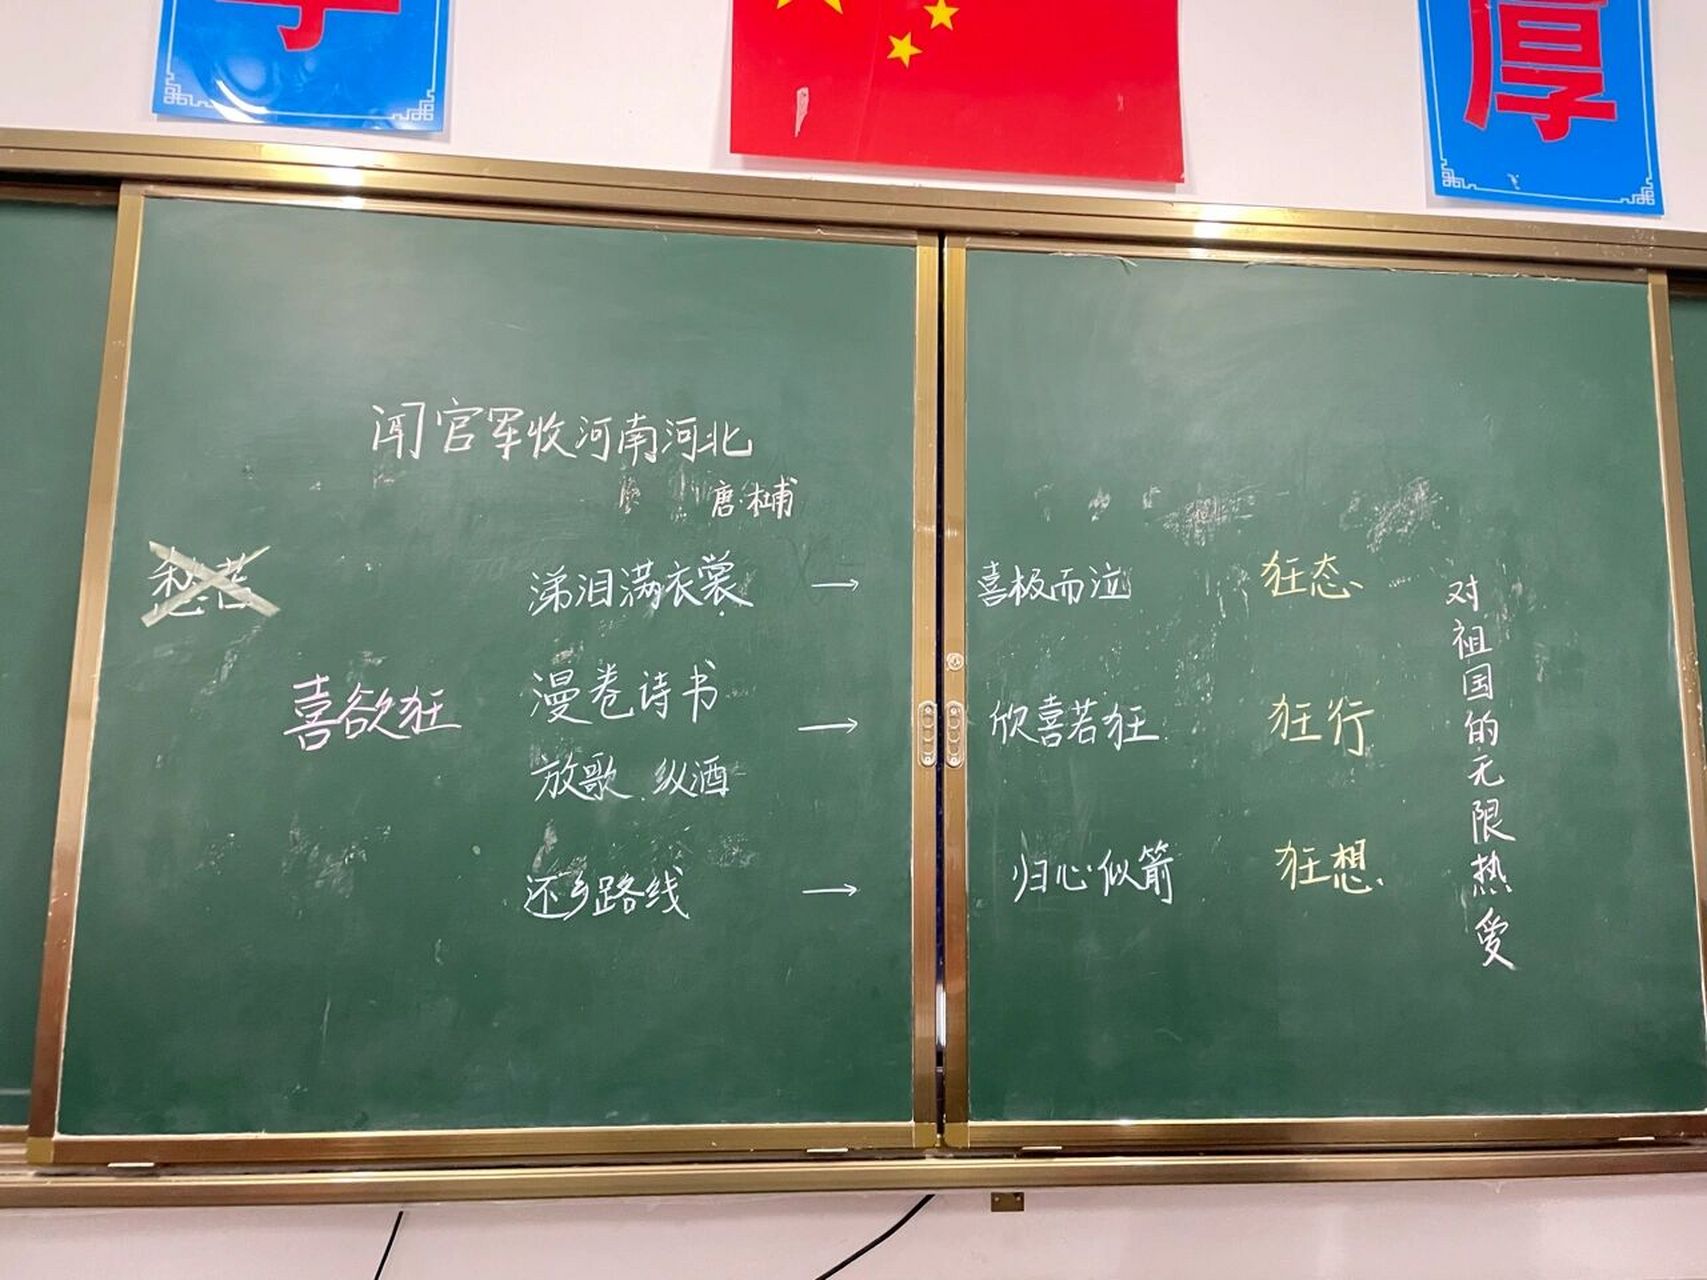 学
厚
闻官军收河南河北
唐·杜甫
愁苦
涕泪满衣裳 → 喜极而泣 狂态
喜欲狂
漫卷诗书
放歌 纵酒 → 欣喜若狂 狂行
还乡路线 → 归心似箭 狂想
对祖国的无限热爱